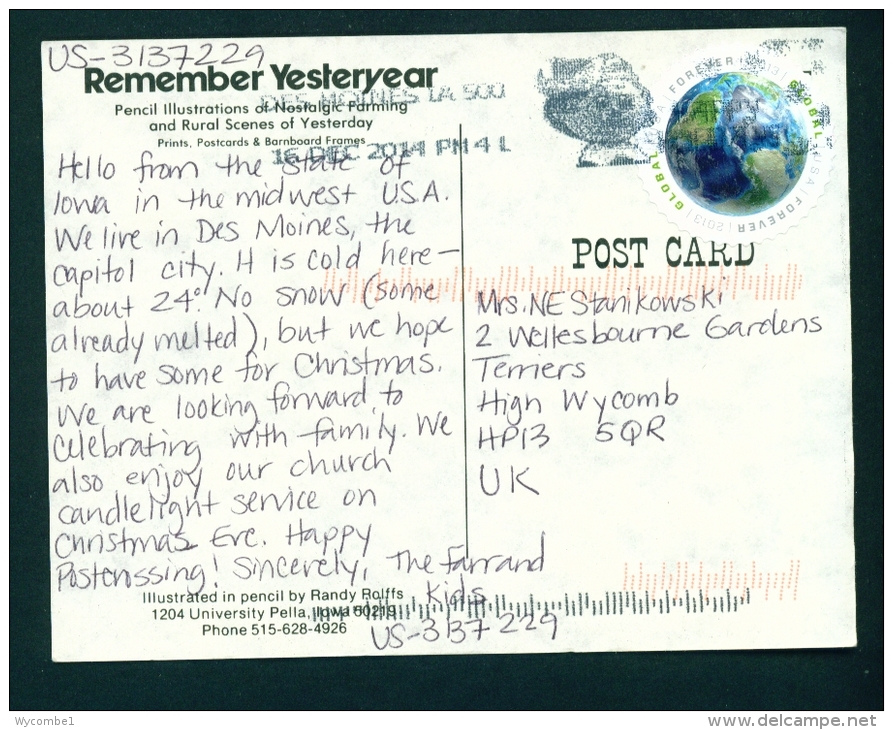 US-3137229
Remember Yesteryear
Pencil Illustrations of Nostalgic Farming
and Rural Scenes of Yesterday
Prints, Postcards & Barnboard Frames
DES MOINES IA 500
16 DEC 2014 PM 4 L
GLOBAL USA FOREVER 2013 GLOBAL USA FOREVER 2013
POST CARD
Hello from the state of
Iowa in the midwest USA.
We live in Des Moines, the
capitol city. It is cold here—
about 24°. No snow (some
already melted), but we hope
to have some for Christmas.
We are looking forward to
celebrating with family. We
also enjoy our church
candlelight service on
Christmas Eve. Happy
Postcrossing! Sincerely, The Farrand
Kids
US-3137229
Mrs. NE Stanikowski
2 Wellesbourne Gardens
Terriers
High Wycomb
HP13 5QR
UK
Illustrated in pencil by Randy Rolffs
1204 University Pella, Iowa 50219
Phone 515-628-4926
Wycombe1
www.delcampe.net